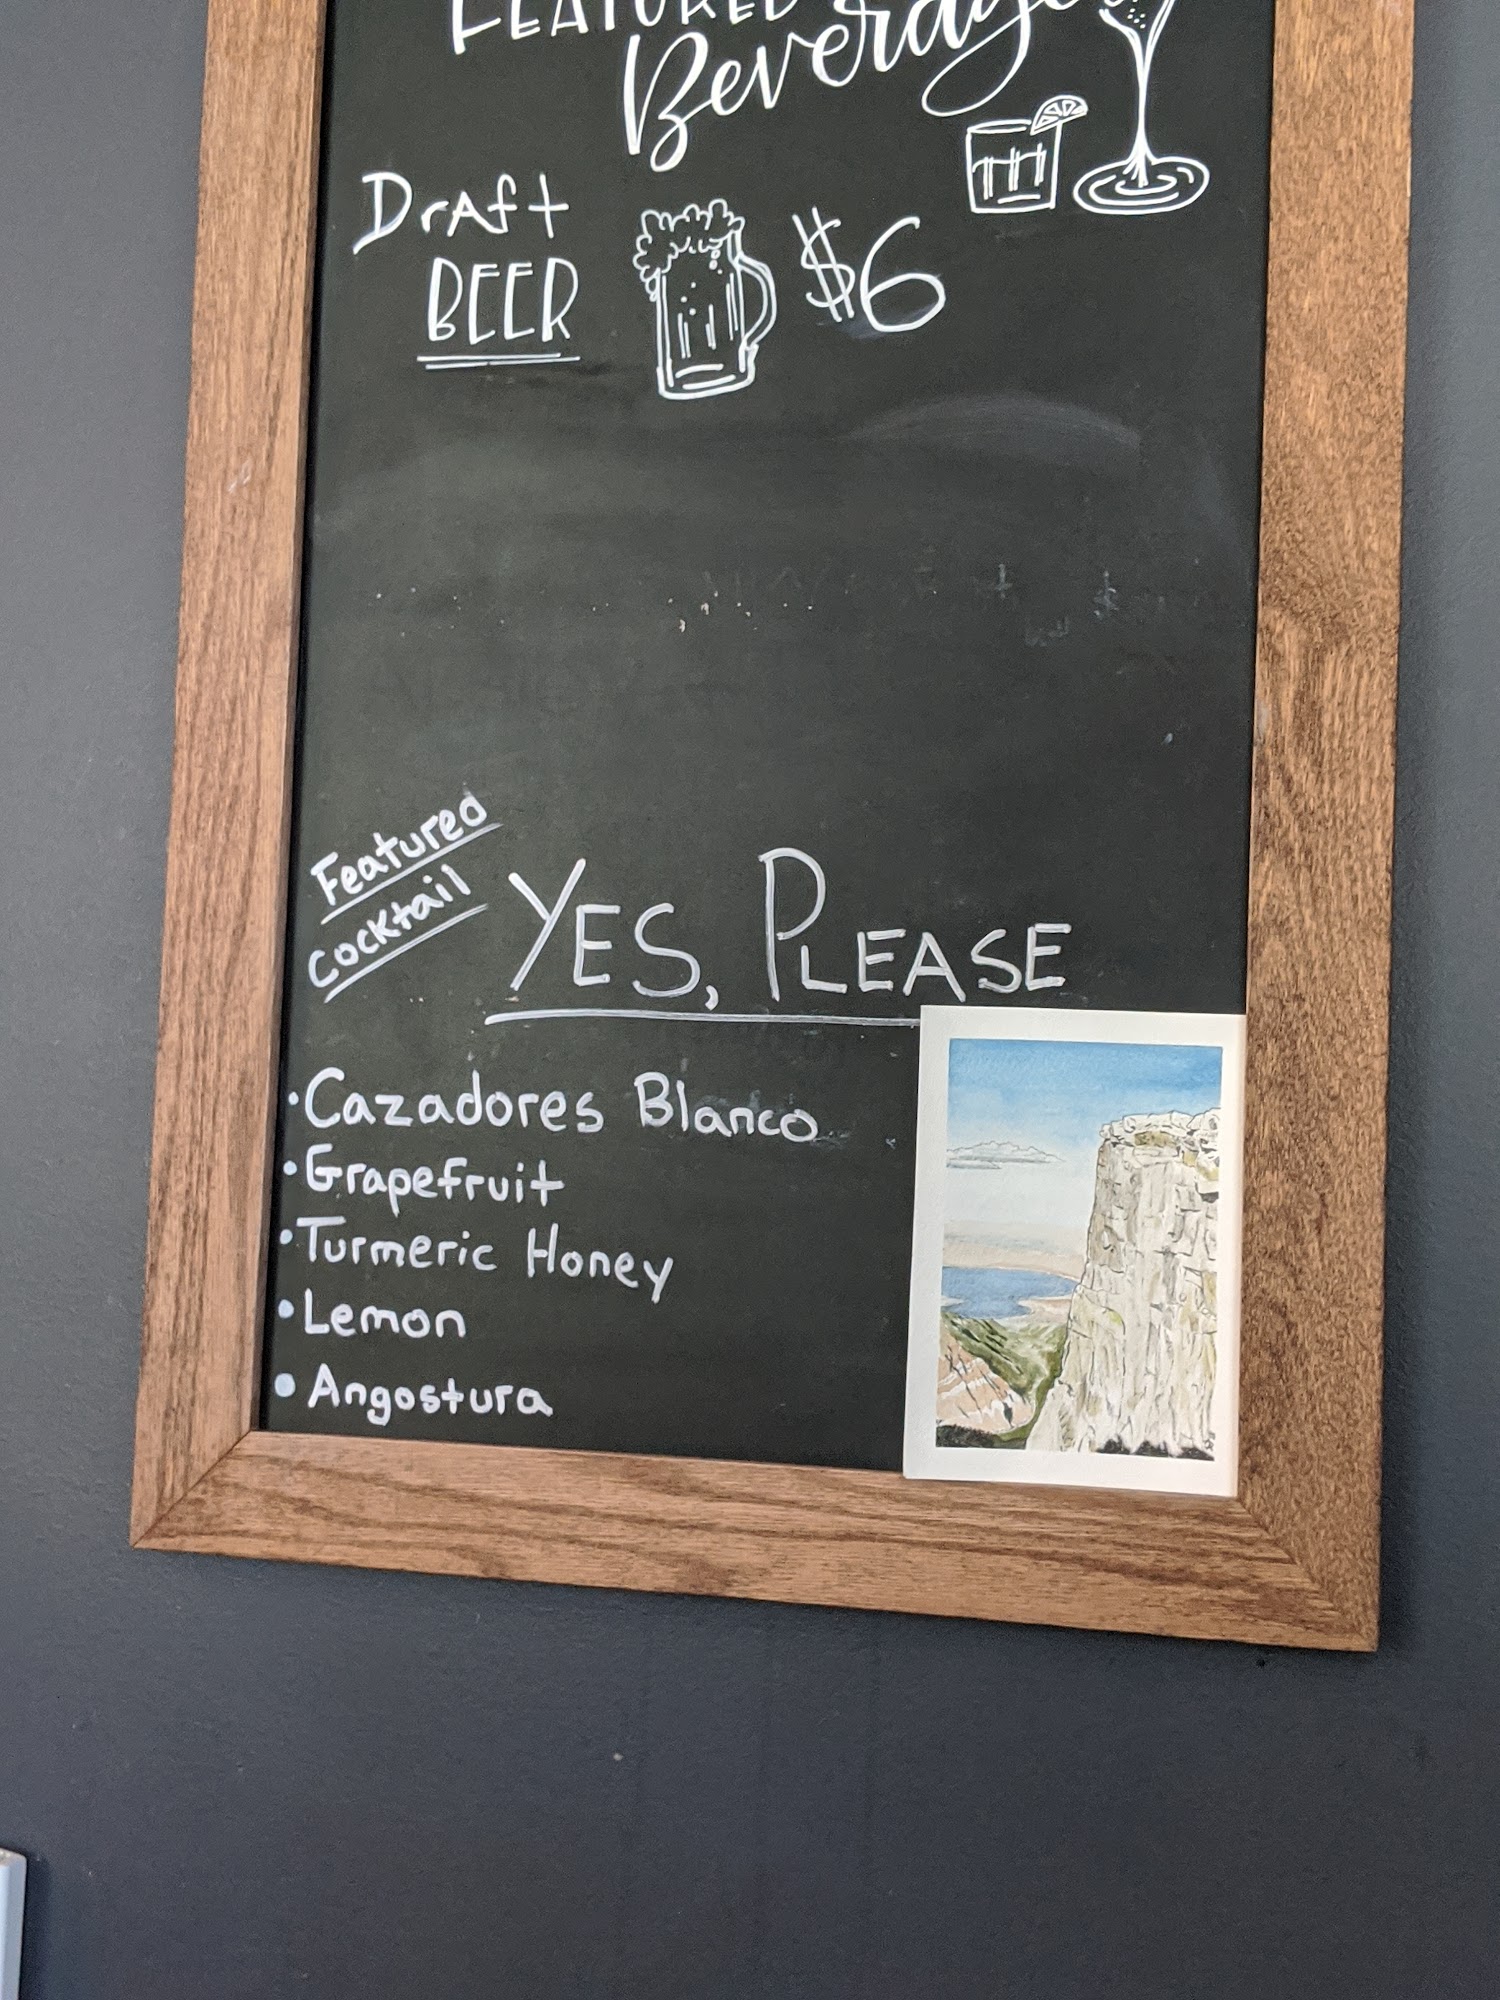 FEATURED
Beverages
DrAft
BEER
$6
Featured
Cocktail
YES, PLEASE
• Cazadores Blanco
• Grapefruit
• Turmeric Honey
• Lemon
• Angostura